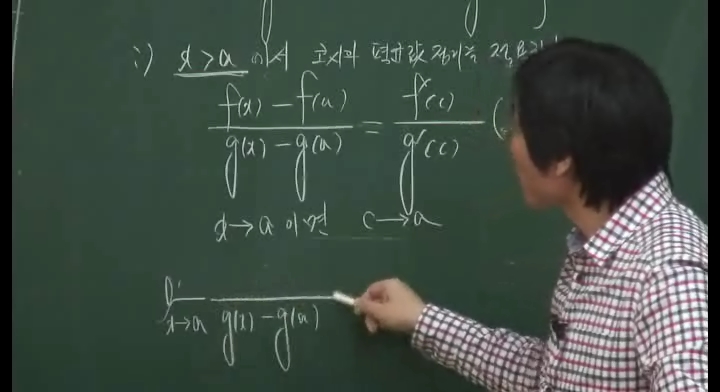 i) x > a 에서 코시의 평균값 정리를 적용하면
f(x) - f(a) / g(x) - g(a) = f'(c) / g'(c) (
x → a 이면 c → a
lim x→a / g(x) - g(a)